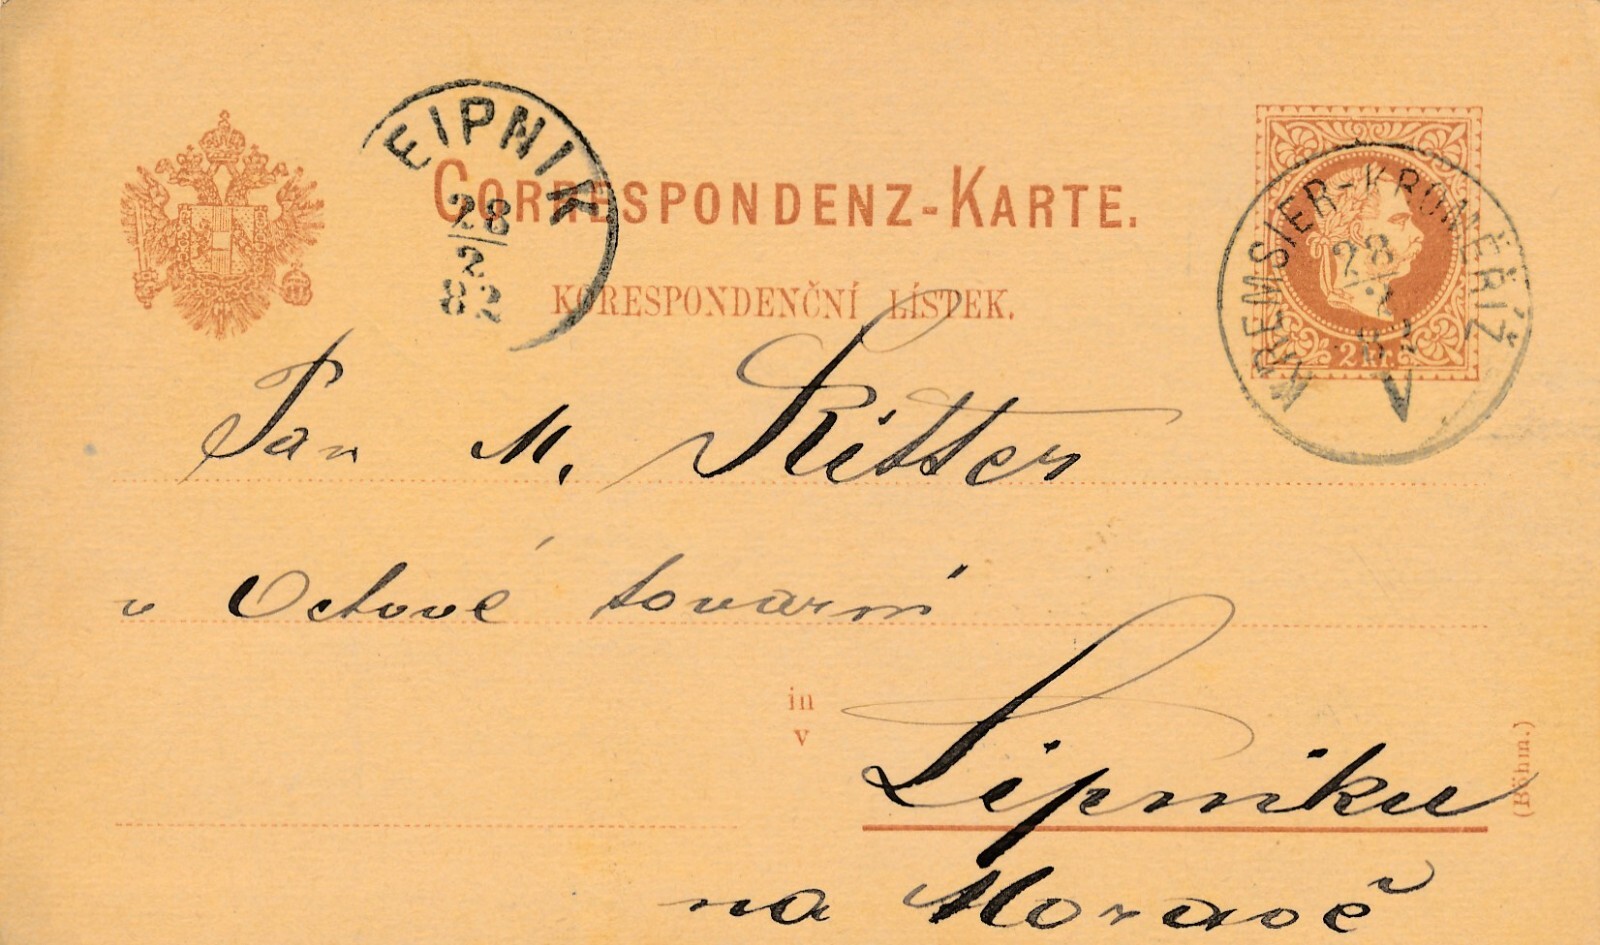 EIPNIK
28
2
82
CORRESPONDENZ-KARTE.
KORESPONDENČNÍ LÍSTEK.
KREMSIER-KROMĚŘÍŽ
28
2
82
2 kr.
Pan M. Ritter
v Octové továrni
in
v
Lipníku
na Moravě
(Böhm.)